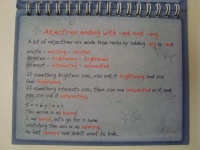 Adjectives ending with -ed and -ing
A lot of adjectives are made from verbs by adding -ing or -ed
excite - exciting - excited
frighten - frightening - frightened
interest - interesting - interested
If something frightens you, you call it frightening and you
feel frightened.
If something interests you, then you are interested in it and
you call it interesting.
Examples:
This movie is so boring!
I am bored, let's go for a swim.
Watching the sun is so relaxing.
He felt and didn't want to talk.